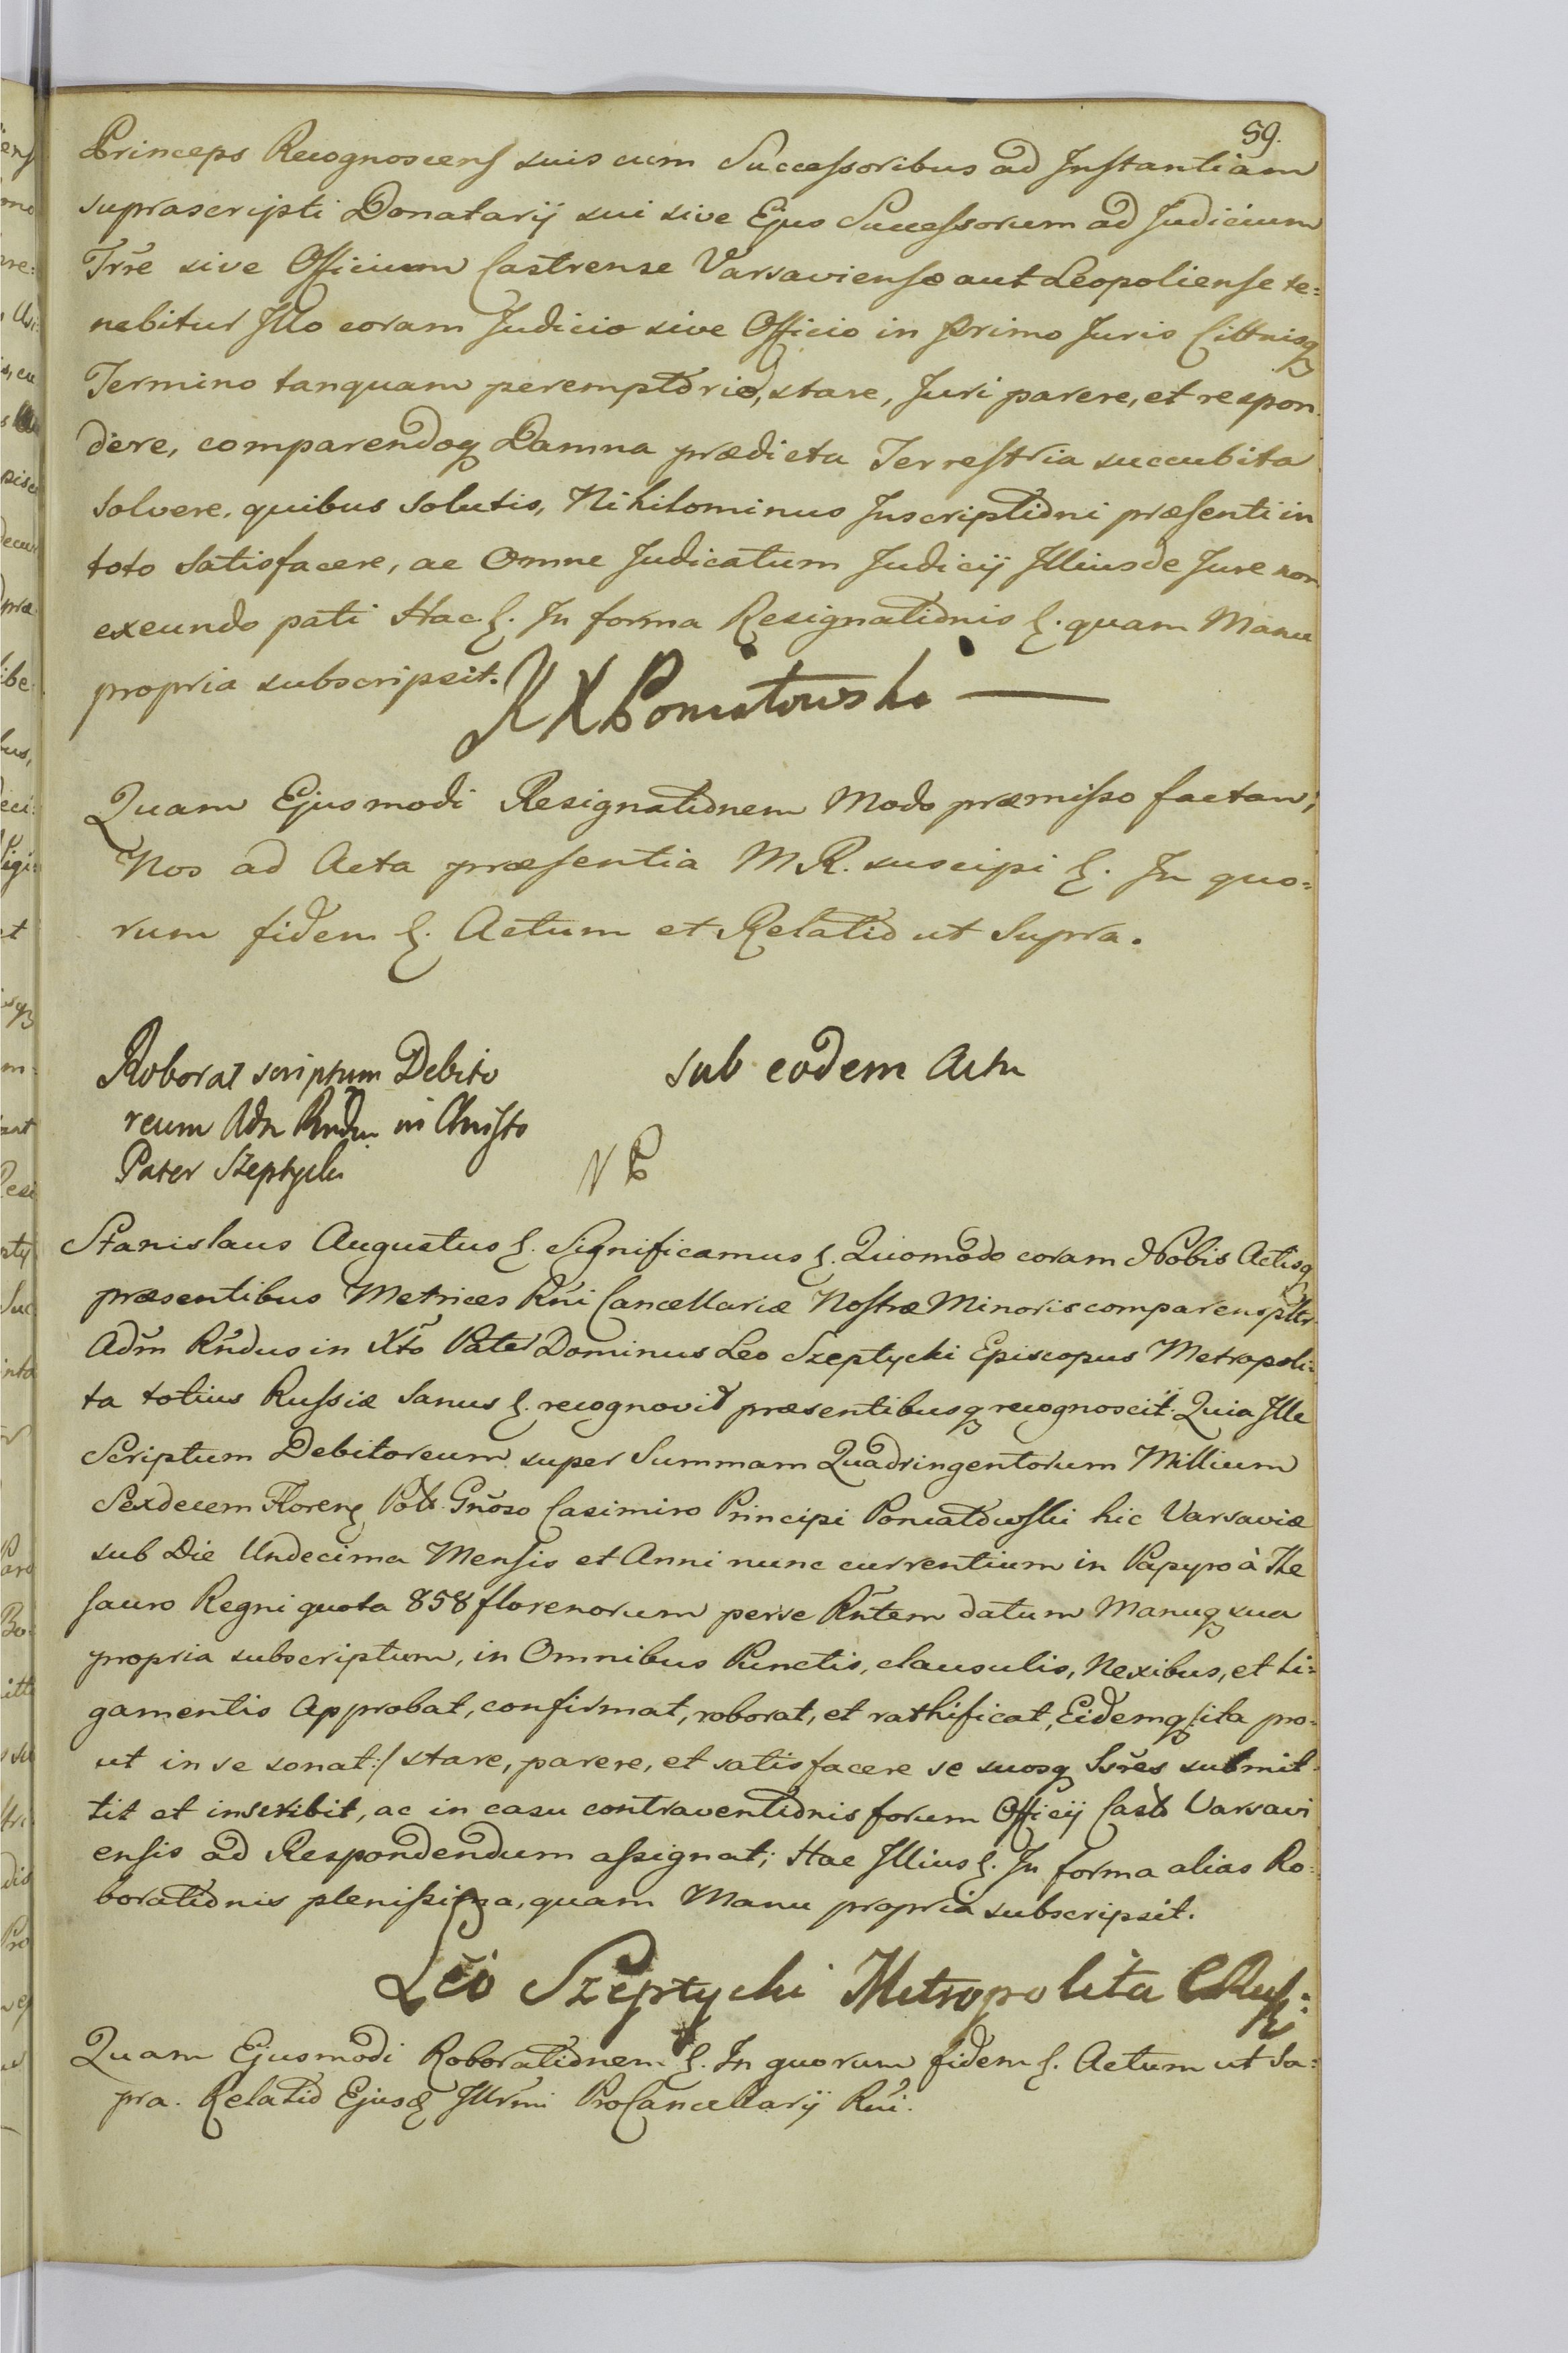 59.
Princeps Recognoscens suis cum Successoribus ad Instantiam
suprascripti Donatarij sui sive Ejus Successorum ad Judicium
Trr̃e sive Officium Castrense Varsaviense aut Leopoliense te=
nebitur Illo coram Judicio sive Officio in Primo Juris Cittnisq
Termino tanquam peremptorio, stare, Juri parere, et respon
dere, comparendoq Damna prædicta Terrestria succubita
solvere, quibus solutis, Nihilominus Inscriptioni præsenti in
toto satisfacere, ac Omne Judicatum Judicij Illius de Jure non
exeundo pati Hac &. In forma Resignationis &. quam Manu
propria subscripsit.
K X Poniatowski —
Quam Ejusmodi Resignationem Modo præmisso factam,
Nos ad Acta præsentia M R. suscipi &. In quo=
rum fidem &. Actum et Relatio ut Supra.
Roborat scriptum Debito
sub eodem Actu
reum Adm Rndu in Christo
Pater Szeptycki
Stanislaus Augustus &. Significamus &. Quomodo coram Nobis Actisq
præsentibus Metrices Rñi Cancellariæ Nostræ Minoris comparens pltr
Adm̃ Rñdus in Xt̃o Pater Dominus Leo Szeptycki Episcopus Metropoli=
ta totius Russiæ Sanus &. recognovit præsentibusq recognoscit. Quia Ille
Scriptum Debitoreum super Summam Quadringentorum Millium
Sexdecem Floren Polt. Gñoso Casimiro Principi Poniatowski hic Varsaviæ
sub Die Undecima Mensis et Anni nunc currentium in Papyro à The
sauro Regni quota 858 florenorum per se Rñtem datum Manuq sua
propria subscriptum, in Omnibus Punctis, clausulis, Nexibus, et Li=
gamentis Approbat, confirmat, roborat, et rathificat, Eidemq /:ita pro=
ut in se sonat:/ stare, parere, et satisfacere se suosq Ss̃res submit
tit et inscribit, ac in casu contraventionis forum Officij Castr Varsavi
ensis ad Respondendum assignat; Hac Illius &. In forma alias Ro=
borationis plenissima, quam Manu propria subscripsit.
Leo Szeptycki Metropolita
Quam Ejusmodi Roborationem &. In quorum fidem &. Actum ut Su=
pra. Relatio Ejusd Illr̃mi ProCancellarij Rñi.